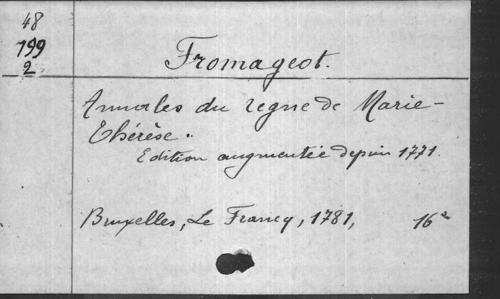 48
199
2
Fromageot.
Annales du regne de Marie-
Thérèse.
Edition augmentée depuis 1771.
Bruxelles, Le Francq, 1781, 16°